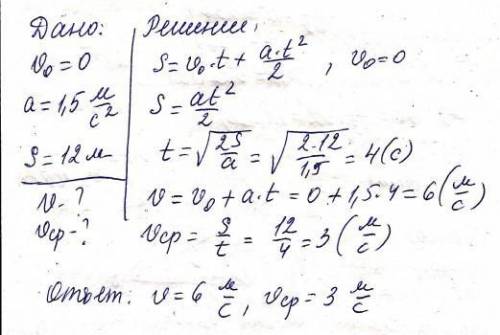 Дано:
v₀ = 0
a = 1,5 м/с²
S = 12 м
v - ?
vср - ?
Решение:
S = v₀·t + a·t²/2 , v₀ = 0
S = at²/2
t = √(2S/a) = √(2·12/1,5) = 4 (с)
v = v₀ + a·t = 0 + 1,5·4 = 6 (м/с)
vср = S/t = 12/4 = 3 (м/с)
Ответ: v = 6 м/с, vср = 3 м/с